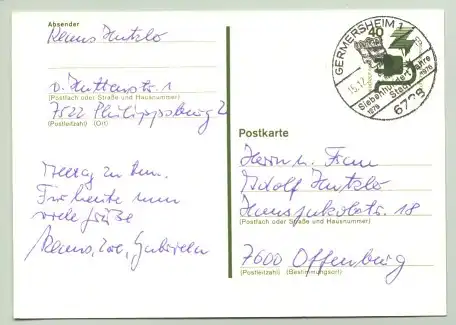 Absender
Klaus Hutzlo
v. Huttenstr. 1
(Postfach oder Straße und Hausnummer)
7522 Philippsburg 2
(Postleitzahl) (Ort)
zu
Für heute nun
viele Grüße
Klaus,
GERMERSHEIM 1
40
15.12.
Siebenhundert Jahre
Stadt
1276 1976
6728
Postkarte
Herrn u. Frau
Adolf Hutzlo
Hansjakobstr. 18
(Postfach oder Straße und Hausnummer)
7600 Offenburg
(Postleitzahl) (Bestimmungsort)